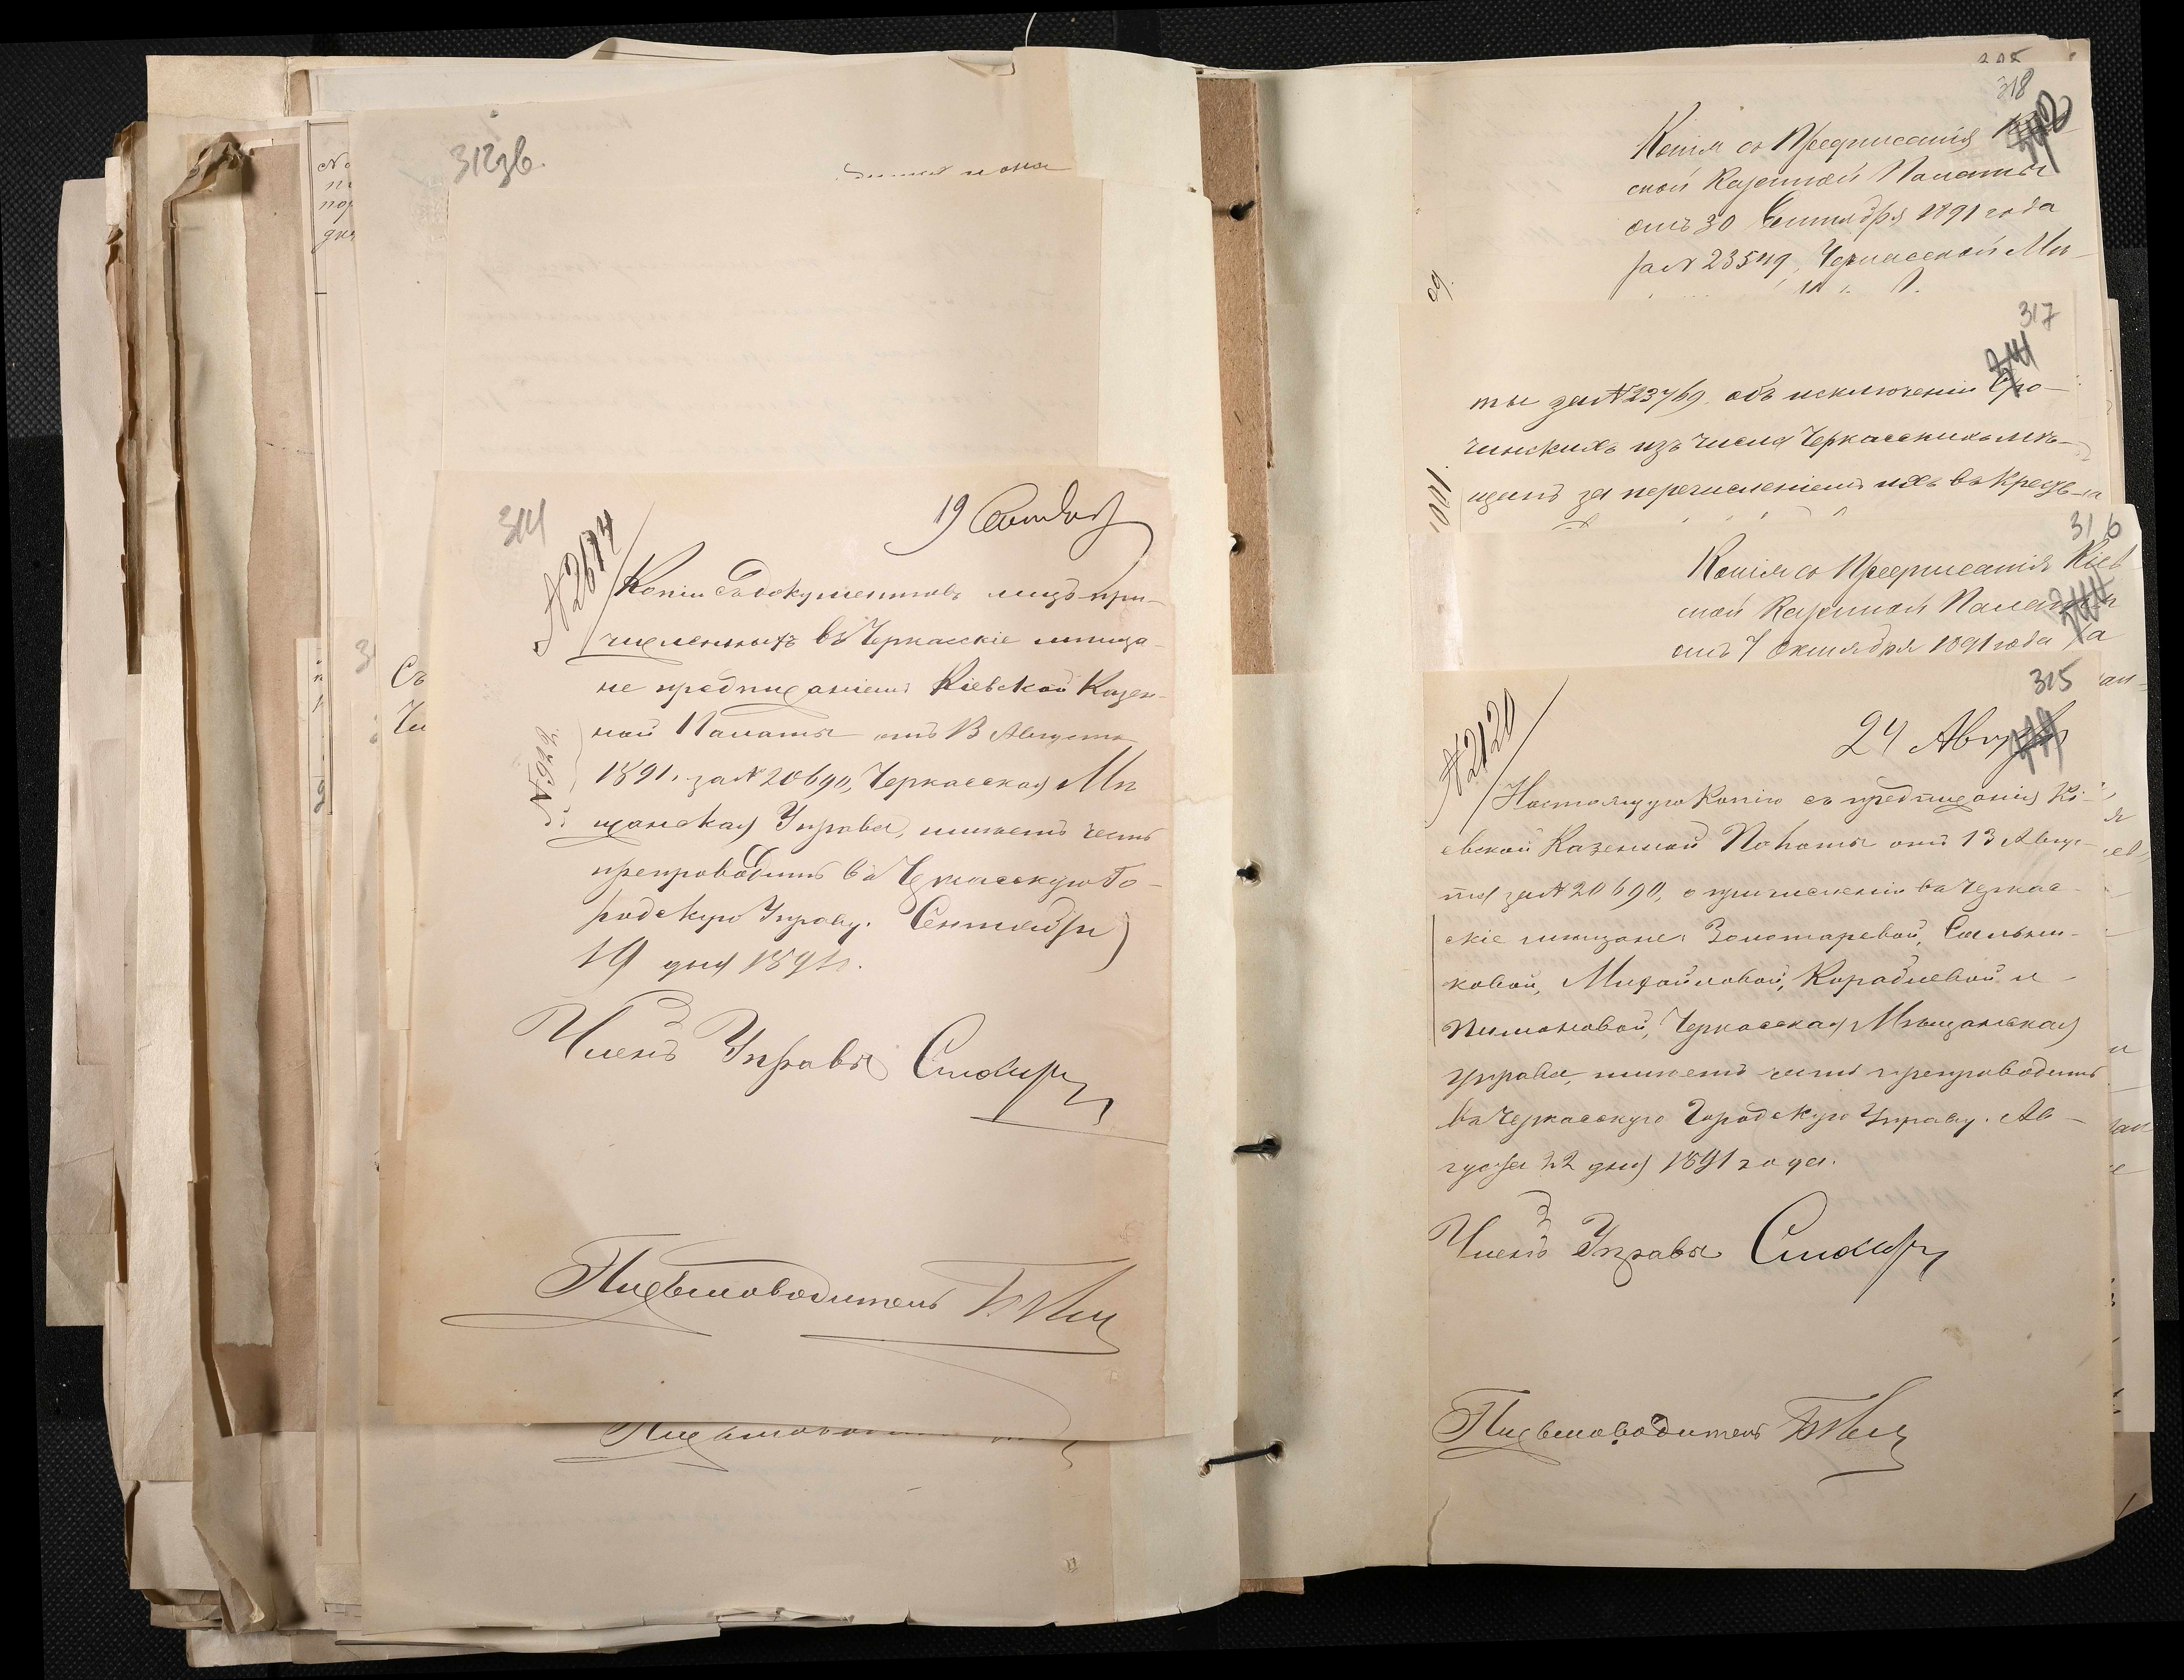 312зв.
314
19 Сентября
№ 2674
Копіи съ документовъ лицъ при-
численныхъ въ Черкасскіе мѣща-
не предписаніемъ Кіевской Казен-
ной Палаты отъ 13 Августа
1891 г. за № 20690, Черкасская Мѣ
щанская Управа, имѣетъ честь
препроводить въ Черкасскую Го-
родскую Управу. Сентября
19 дня 1891 г.
Членъ Управы
Письмоводитель
№ 922
Съ
318
Копія съ Предписанія
ской Казенной Палаты
отъ 30 Сентября 1891 года
за № 23549, Черкасской Мѣ-
317
ты за № 23769 объ исключеніи
чинскихъ изъ числа Черкасскихъ мѣ-
щанъ за перечисленіемъ ихъ въ
316
Копія съ Предписанія Кіев
ской Казенной Палаты
отъ 7 Октября 1891 года за
315
24 Августа
№ 2120
Настоящую Копію съ предписанія Кі-
евской Казенной Палаты отъ 13 Авгу-
ста за № 20690, о причисленіи въ Черкас-
скіе мѣщане: Золотаревой, Сальни-
ковой, Михайловой, Кораблевой и
Пимоновой, Черкасская Мѣщанская
Управа, имѣетъ честь препроводить
въ Черкасскую Городскую Управу. Ав-
густа 22 дня 1891 года.
Членъ Управы
Письмоводитель